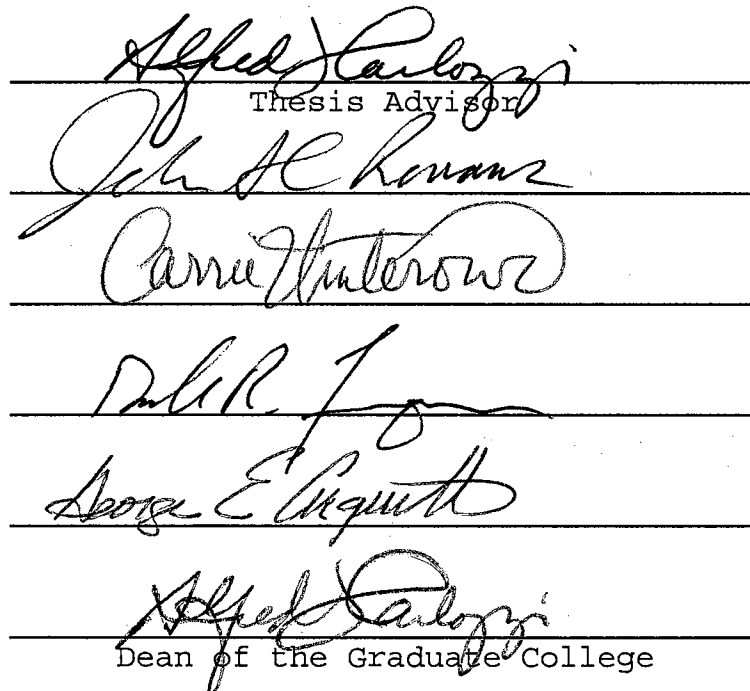 Alfred Carlozzi
Thesis Advisor
John S C Romans
Carrie Winterowd
R.
George E Arquitt
Alfred Carlozzi
Dean of the Graduate College